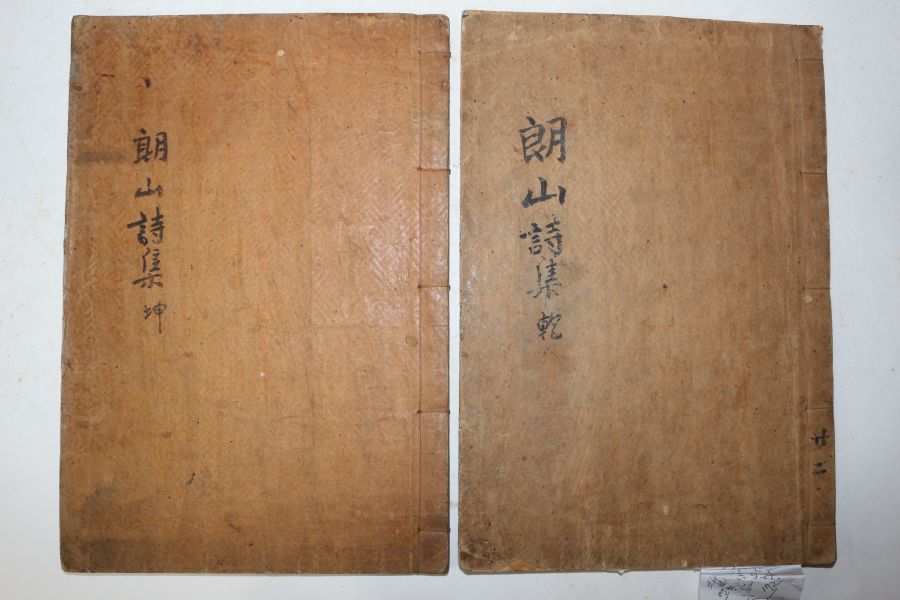 朗山詩集 乾
廿二
朗山詩集 坤